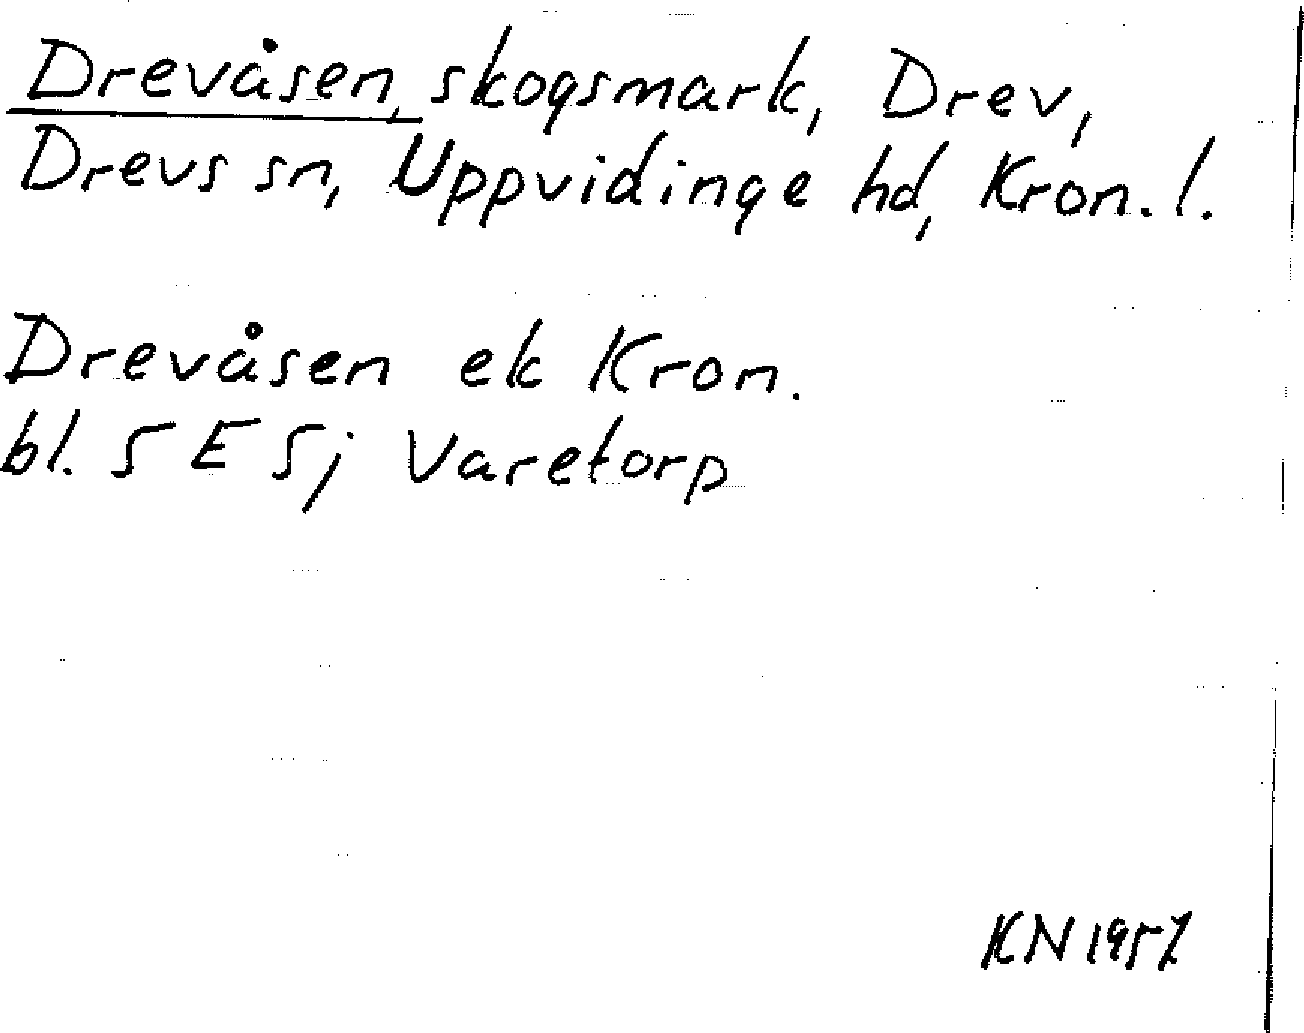 Drevåsen, skogsmark, Drev,
Drevs sn, Uppvidinge hd, Kron. l.
Drevåsen ek Kron.
bl. 5 E 5 j Varetorp
KN 1957